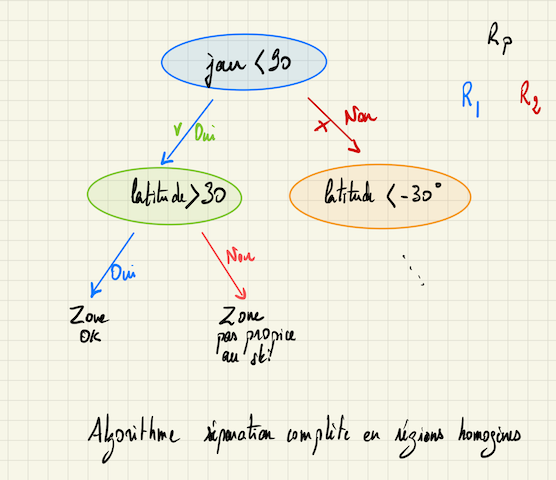 jour < 90
Rp
R1 R2
v Oui
x Non
latitude > 30
latitude < -30°
Oui
Non
Zone
OK
Zone
pas propice
au ski
Algorithme séparation complète en régions homogènes